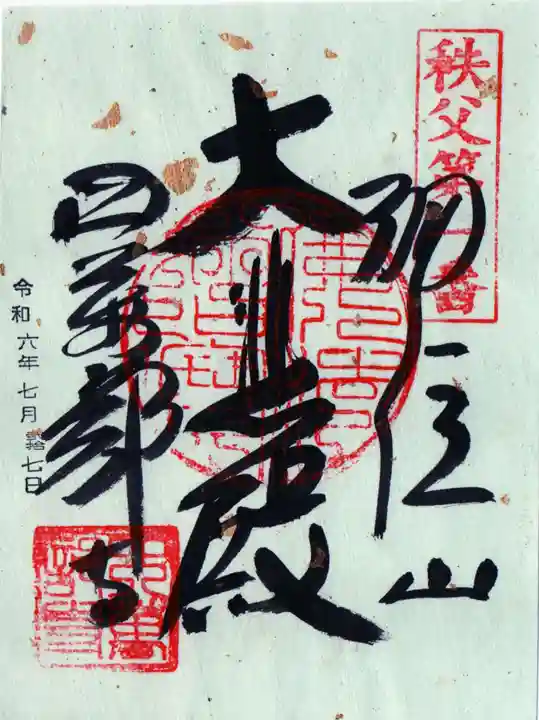 秩父第一番
誦経山
大悲殿
四萬部寺
令和六年七月貳拾七日